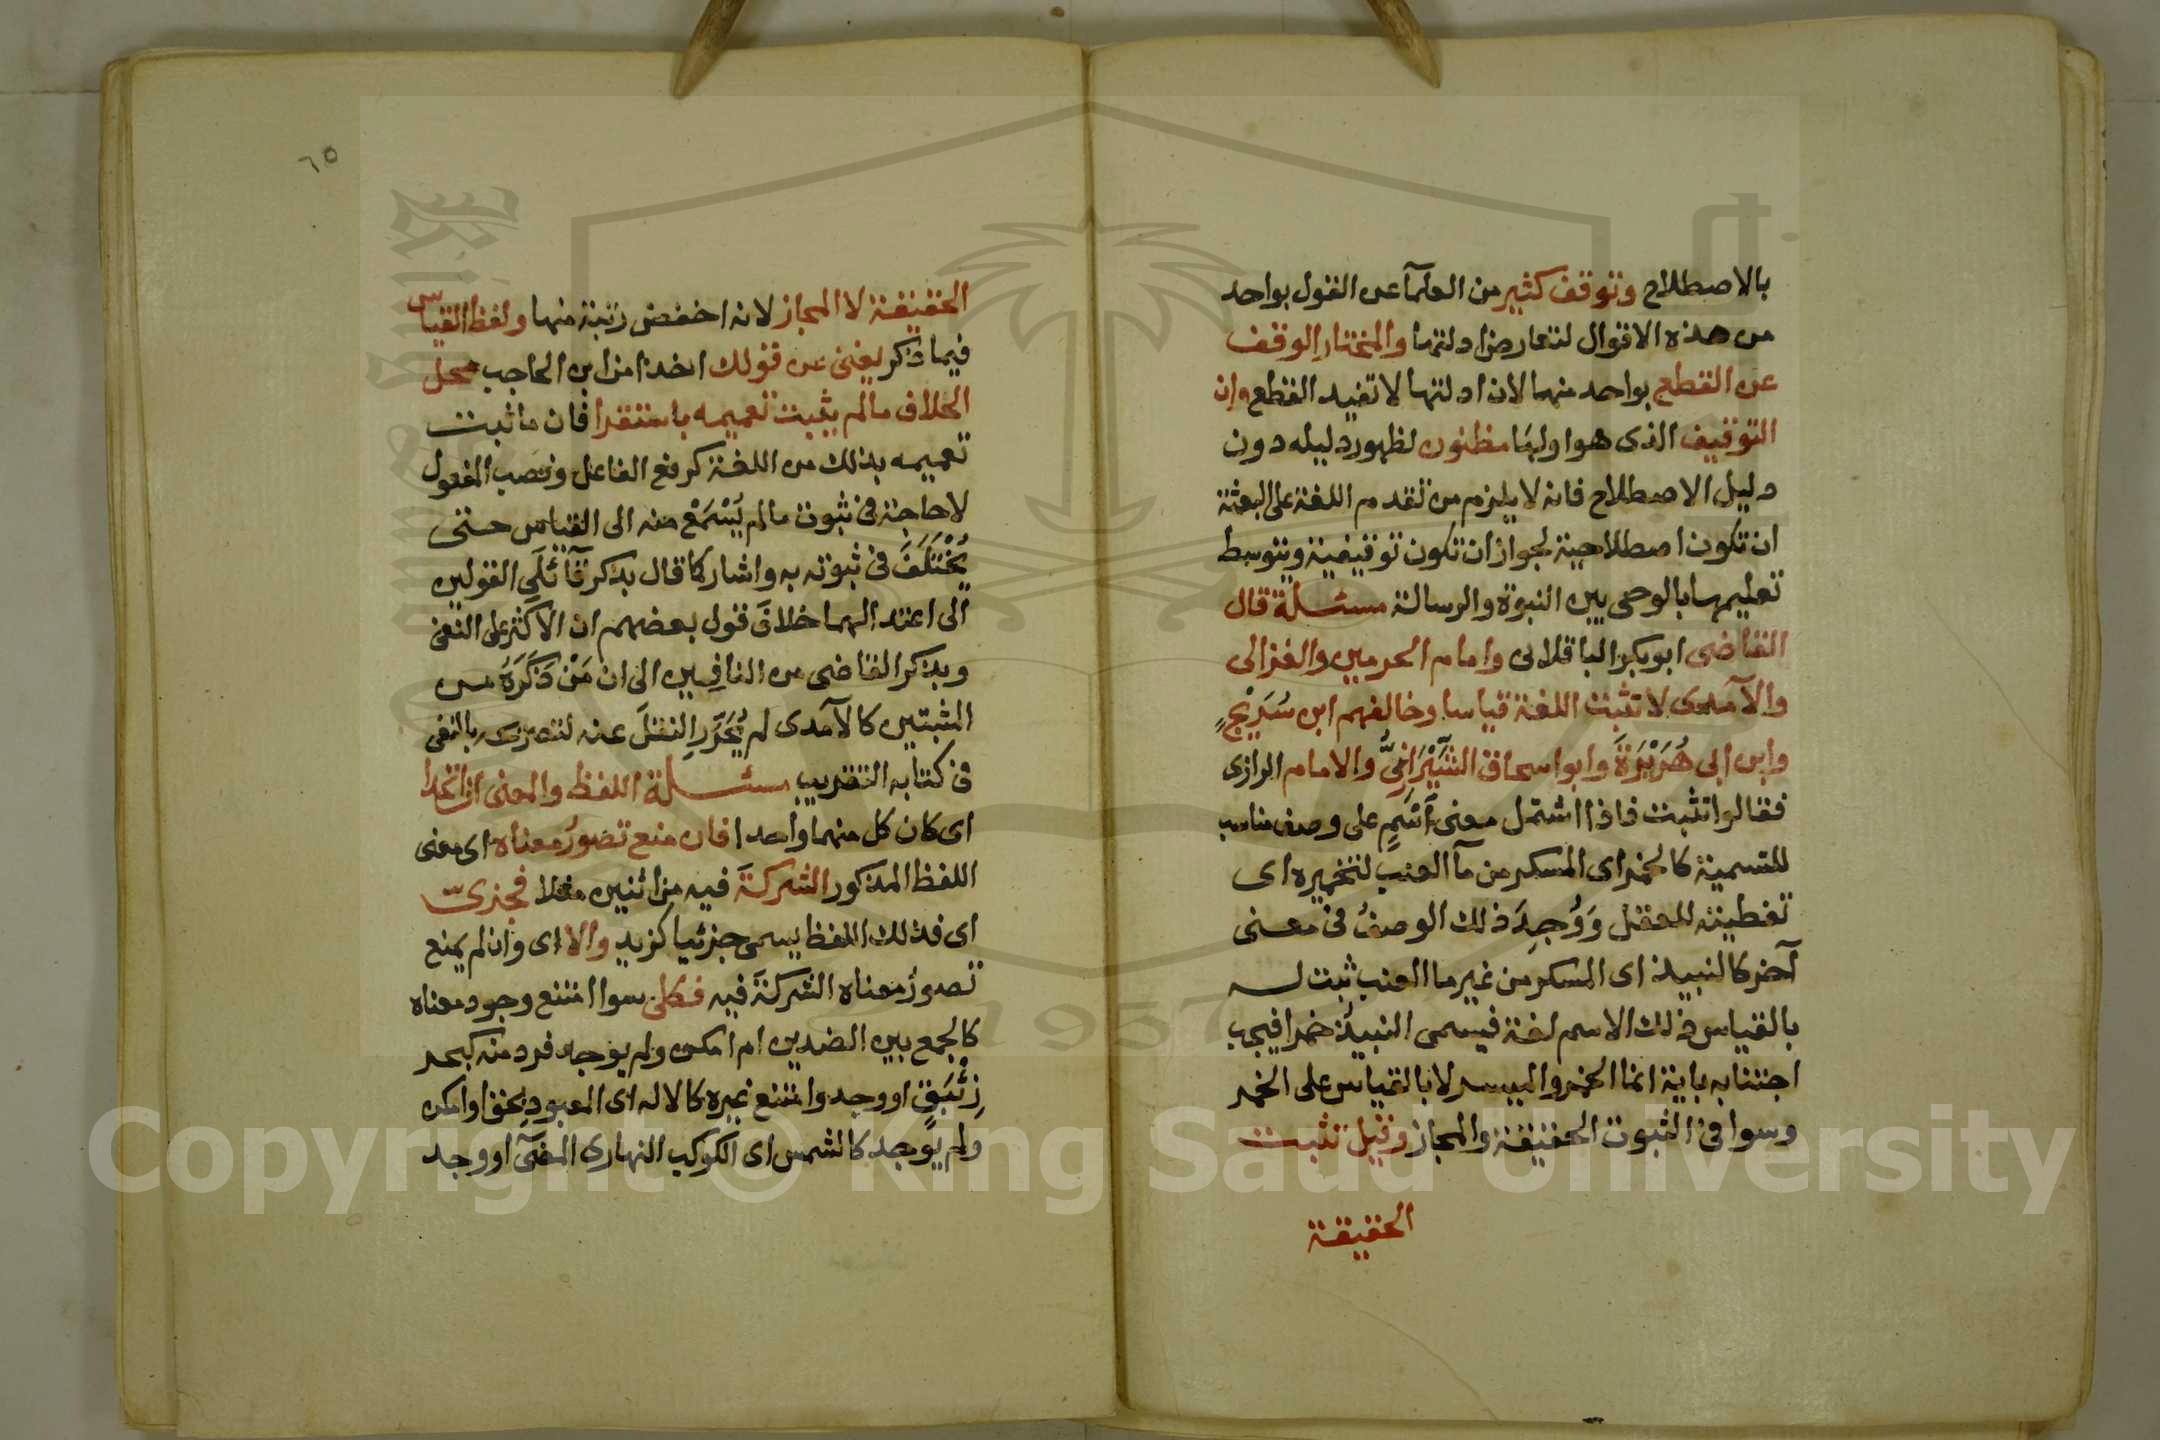 بالاصطلاح وتوقف كثير من العلمآ عن القول بواحد
من هذه الاقوال لتعارض ادلتها والمختار الوقف
عن القطع بواحد منها لان ادلتها لا تفيد القطع وإن
التوقيف الذى هو اولها مظنون لظهور دليله دون
دليل الاصطلاح فانه لا يلزم من تقدم اللغة على البعثة
ان تكون اصطلاحية لجواز ان تكون توقيفية ويتوسط
تعليمها بالوحى بين النبوة والرسالة مسئلة قال
القاضى ابو بكر الباقلانى وامام الحرمين والغزالى
والآمدى لا تثبت اللغة قياسا وخالفهم ابن سُرَيْجٍ
وابن ابى هُرَيْرَةَ وابو اسحاق الشِّيْرَازِيُّ والامام الرازى
فقالوا تثبت فاذا اشتمل معنى اسْمٍ على وصف مناسب
للتسمية كالخمر اى المسكر من مآ العنب لتخميره اى
تغطيته للعقل وَوُجِدَ ذلك الوصفُ فى معنى
آخر كالنبيذ اى المسكر من غير ما العنب ثبت له
بالقياس ذلك الاسم لغة فيسمى النبيذُ خمرا فيجب
اجتنابه باية انما الخمر والميسر لا بالقياس على الخمر
وسوا فى الثبوت الحقيقة والمجاز وقيل تثبت
الحقيقة
٦٥
الحقيقة لا المجاز لانه اخفض رتبة منها ولفظ القياس
فيما ذكر يغنى عن قولك اخذا من ابن الحاجب محل
الخلاف ما لم يثبت تعميمه باستقرا فان ما ثبت
تعميمه بذلك من اللغة كرفع الفاعل ونصب المفعول
لا حاجة فى ثبوت ما لم يُسْمَعْ منه الى القياس حتى
يُخْتَلَفَ فى ثبوته به واشار كما قال بذكر قآئلَى القولين
الى اعتدالهما خلافَ قول بعضهم ان الاكثر على النفى
وبذكر القاضى من النافِيين الى ان مَنْ ذَكَرَهُ من
المثبتين كالآمدى لم يُحَرِّرِ النقلَ عنه لتصريحه بالنفى
فى كتابه التقريب مسئلة اللفظ والمعنى ان اتحدا
اى كان كل منهما واحدا فان منع تصورُ معناه اى معنى
اللفظ المذكور الشركةَ فيه من اثنين مثلا فجزىّ
اى فذلك اللفظ يسمى جزئيا كزيد والا اى وان لم يمنع
تصورُ معناه الشركةَ فيه فكلى سوا امتنع وجود معناه
كالجمع بين الضدين ام امكن ولم يوجد فرد منه كبحر
زِئْبَقٍ او وجد وامتنع غيره كالاله اى المعبود بحق او امكن
ولم يوجد كالشمس اى الكوكب النهارى المضئ او وجد
Copyright © King Saud University
1957